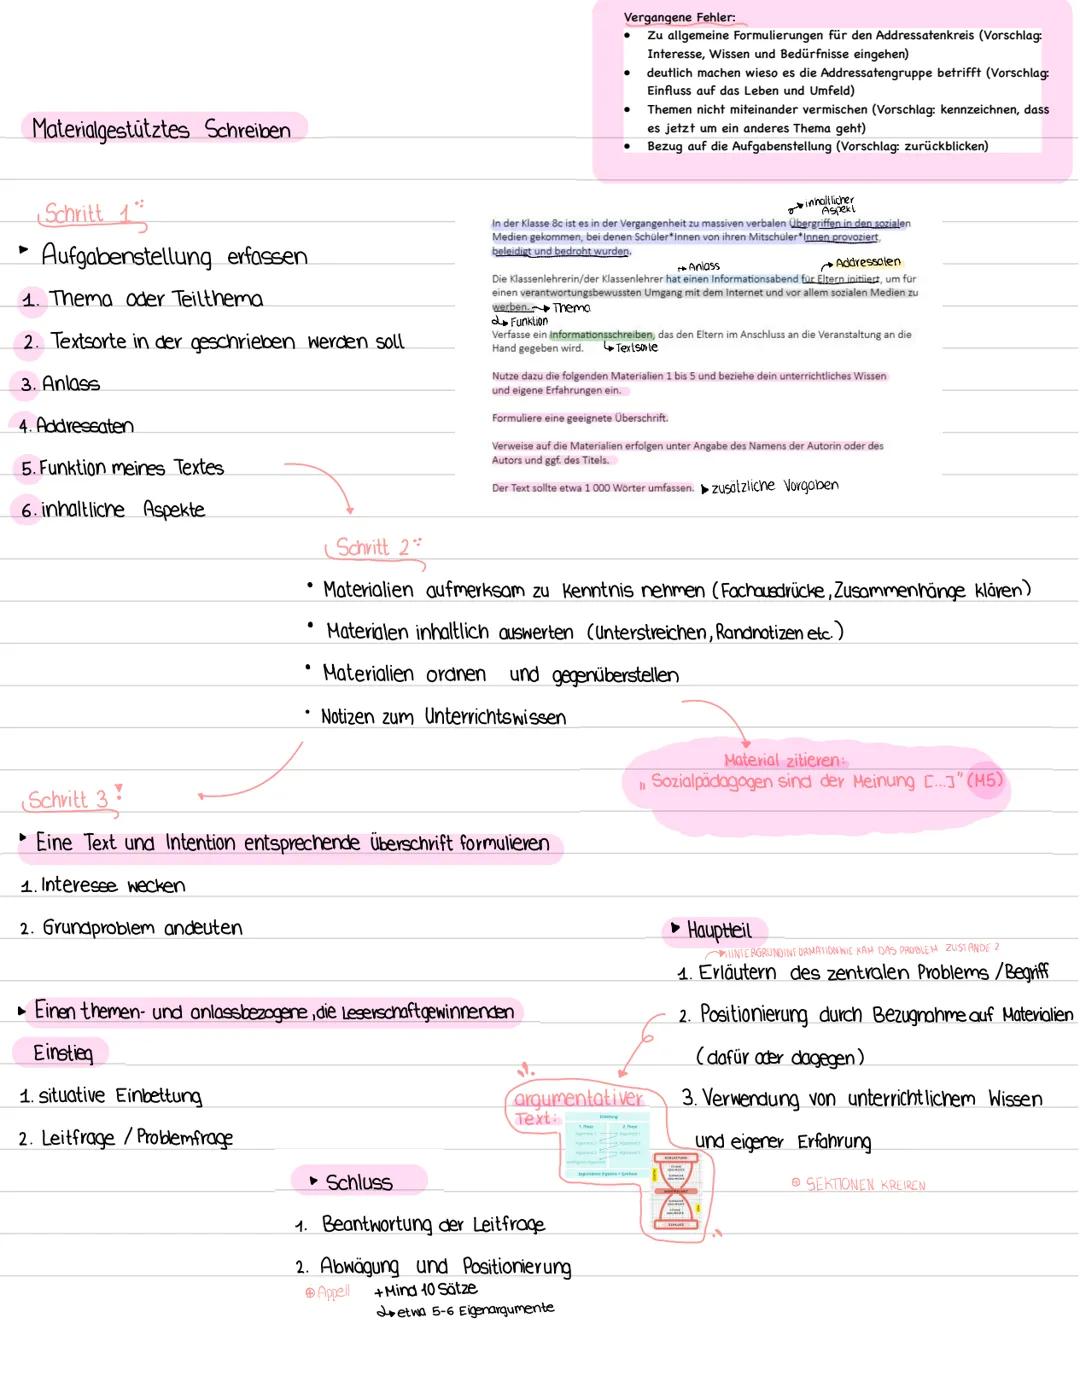 Vergangene Fehler:
• Zu allgemeine Formulierungen für den Addressatenkreis (Vorschlag:
Interesse, Wissen und Bedürfnisse eingehen)
• deutlich machen wieso es die Addressatengruppe betrifft (Vorschlag:
Einfluss auf das Leben und Umfeld)
• Themen nicht miteinander vermischen (Vorschlag: kennzeichnen, dass
es jetzt um ein anderes Thema geht)
• Bezug auf die Aufgabenstellung (Vorschlag: zurückblicken)
Materialgestütztes Schreiben
Schritt 1
Aufgabenstellung erfassen
1. Thema oder Teilthema
2. Textsorte in der geschrieben werden soll
3. Anlass
4. Addressaten
5. Funktion meines Textes
6. inhaltliche Aspekte
inhaltlicher
Aspekt
In der Klasse 8c ist es in der Vergangenheit zu massiven verbalen Übergriffen in den sozialen
Medien gekommen, bei denen Schüler*Innen von ihren Mitschüler*Innen provoziert,
beleidigt und bedroht wurden.
Anlass
Addressaten
Die Klassenlehrerin/der Klassenlehrer hat einen Informationsabend für Eltern initiiert, um für
einen verantwortungsbewussten Umgang mit dem Internet und vor allem sozialen Medien zu
werben. Thema
Funktion
Verfasse ein Informationsschreiben, das den Eltern im Anschluss an die Veranstaltung an die
Hand gegeben wird. Textsorte
Nutze dazu die folgenden Materialien 1 bis 5 und beziehe dein unterrichtliches Wissen
und eigene Erfahrungen ein.
Formuliere eine geeignete Überschrift.
Verweise auf die Materialien erfolgen unter Angabe des Namens der Autorin oder des
Autors und ggf. des Titels.
Der Text sollte etwa 1 000 Wörter umfassen. zusätzliche Vorgaben
Schritt 2
• Materialien aufmerksam zu Kenntnis nehmen (Fachausdrücke, Zusammenhänge klären)
• Materialen inhaltlich auswerten (Unterstreichen, Randnotizen etc.)
• Materialien ordnen und gegenüberstellen
• Notizen zum Unterrichtswissen
Material zitieren:
„Sozialpädagogen sind der Meinung [...]" (M5)
Schritt 3
Eine Text und Intention entsprechende Überschrift formulieren
1. Interesse wecken
2. Grundproblem andeuten
Einen themen- und anlassbezogene, die Leserschaftgewinnenden
Einstieg
1. situative Einbettung
2. Leitfrage / Problemfrage
Hauptteil
HINTERGRUNDINFORMATION WIE KAM DAS PROBLEM ZUSTANDE?
1. Erläutern des zentralen Problems / Begriff
2. Positionierung durch Bezugnahme auf Materialien
(dafür oder dagegen)
3. Verwendung von unterrichtlichem Wissen
und eigener Erfahrung
SEKTIONEN KREIREN
argumentativer
Text:
Schluss
1. Beantwortung der Leitfrage
2. Abwägung und Positionierung
⊕ Appell + Mind 10 Sätze
etwa 5-6 Eigenargumente